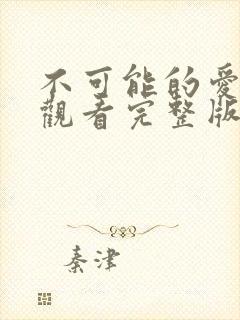 不可能的愛
觀看完整版
秦津